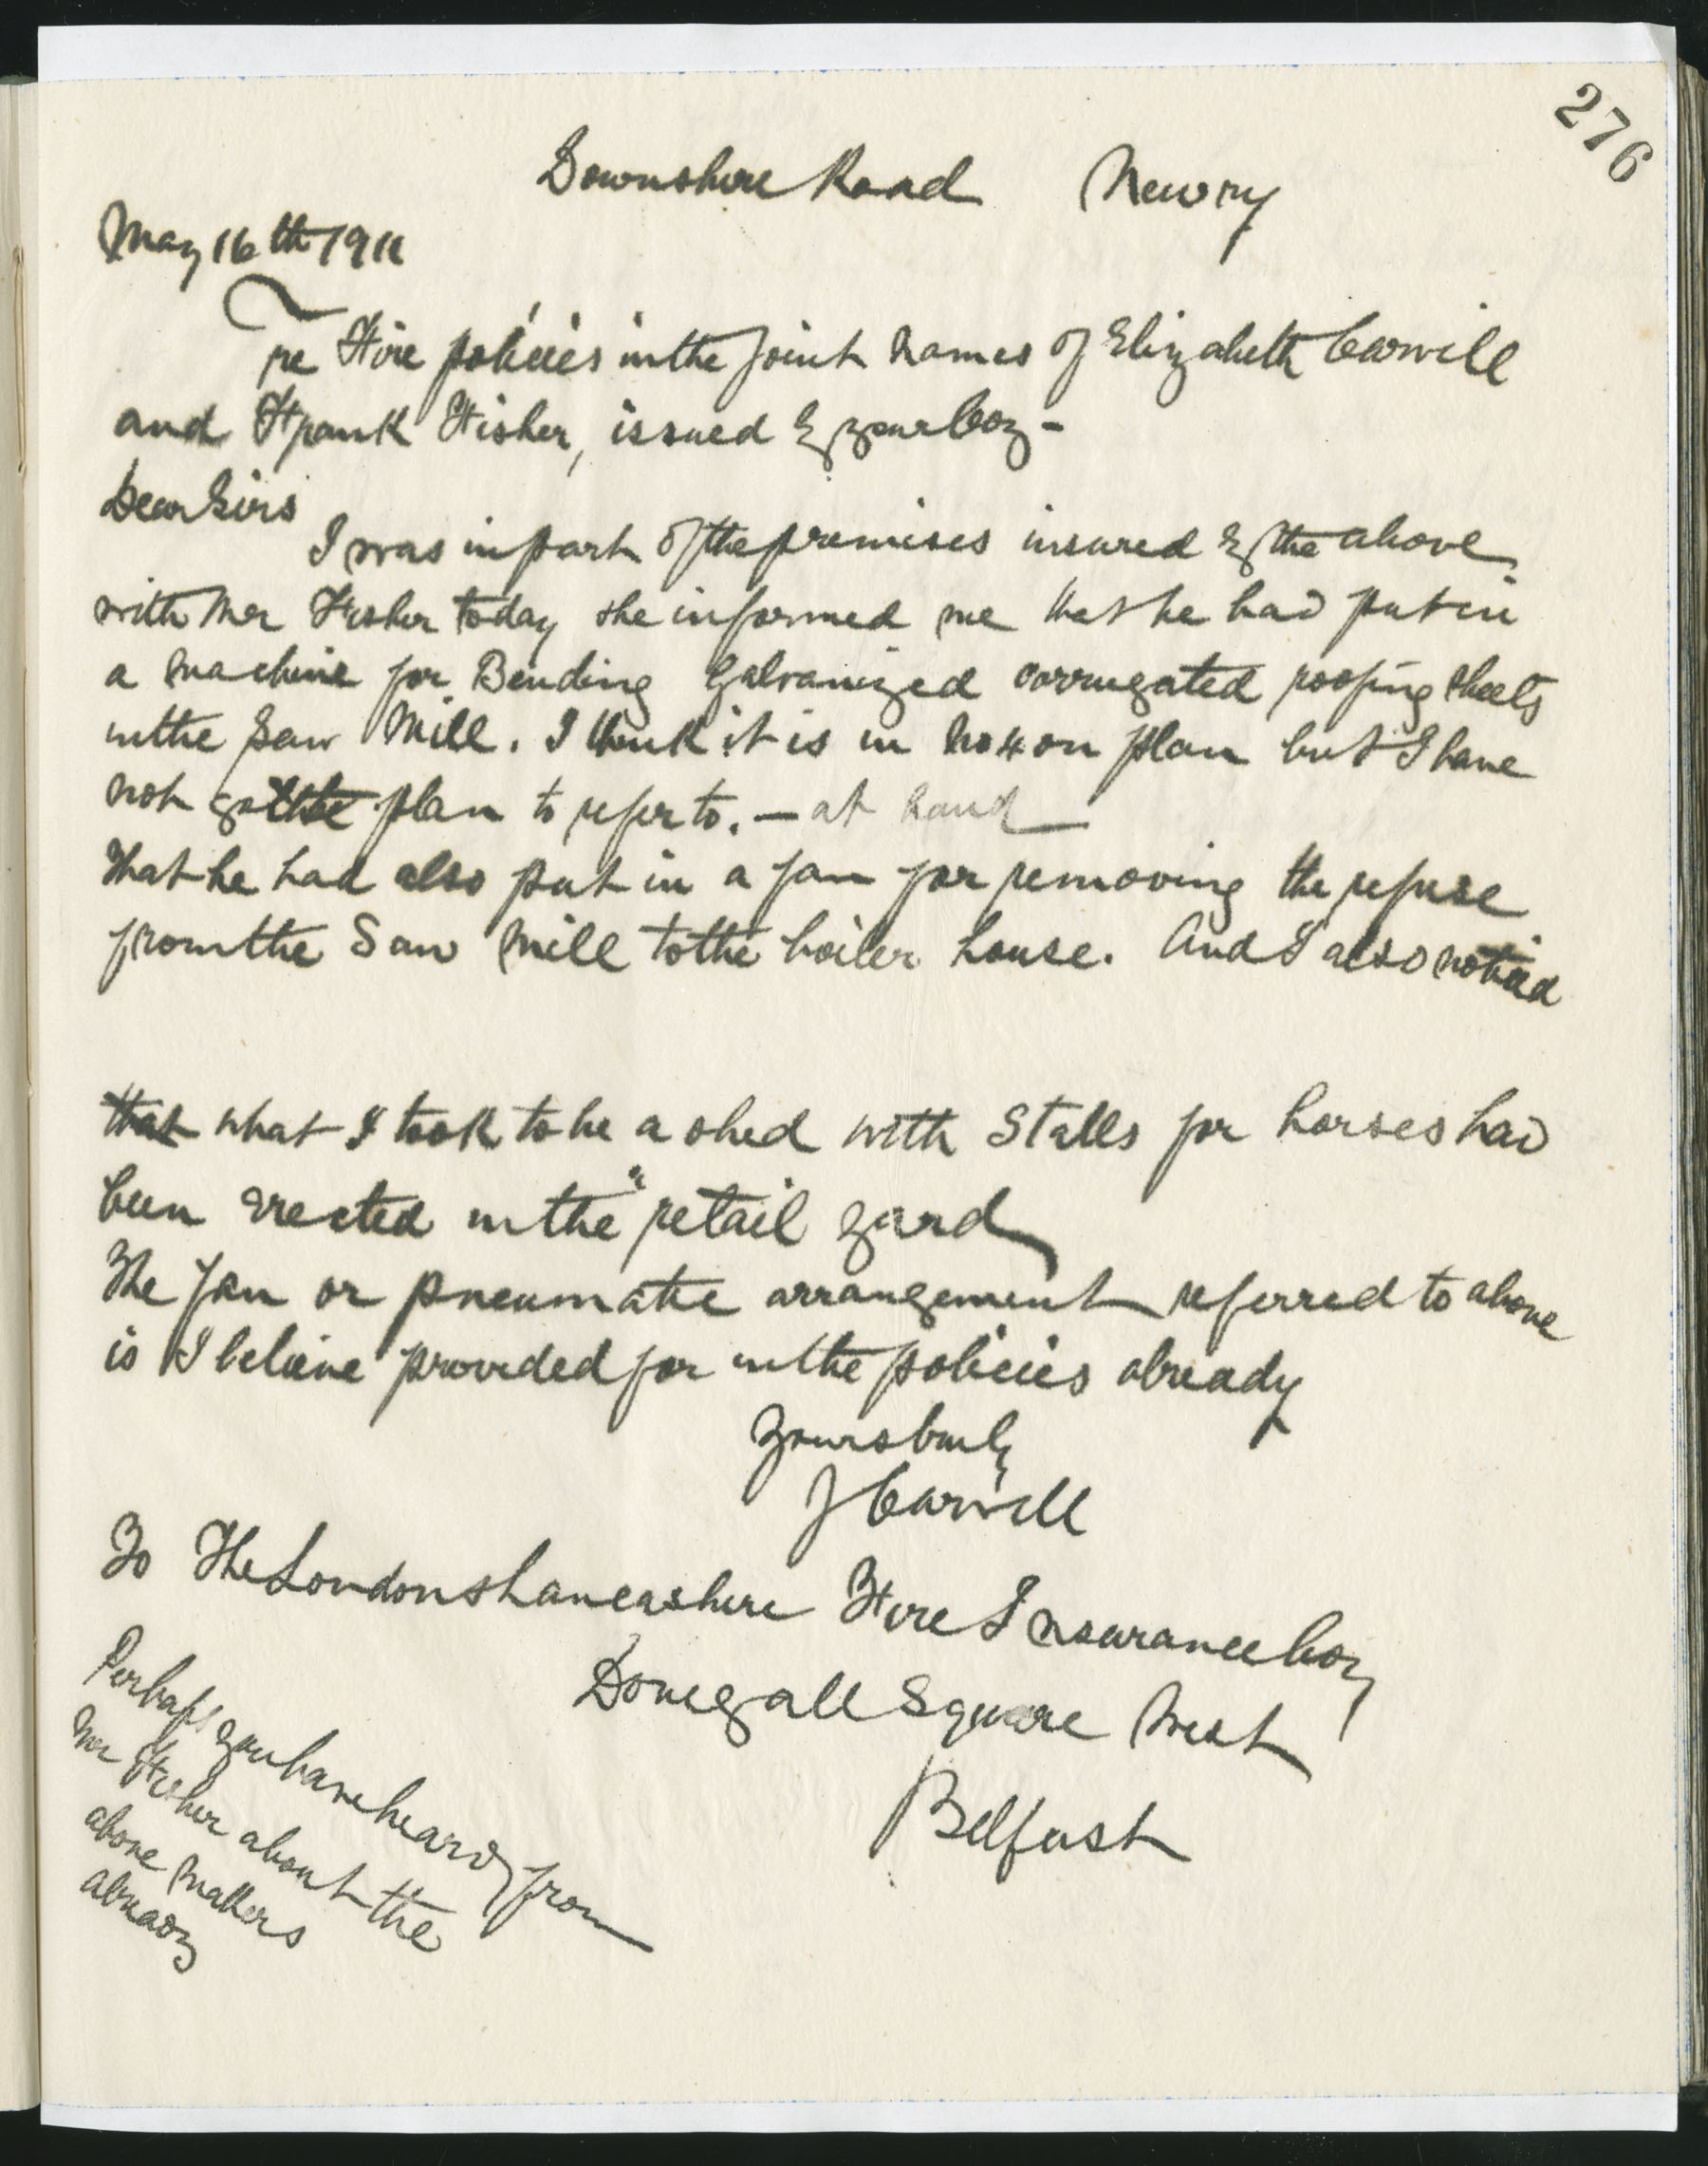 276
Downshire Road Newry
May 16th 1911
re Fire policies in the joint names of Elizabeth Carvill
and Frank Fisher, issued by your Coy -
Dear Sirs
I was in part of the premises insured by the above
with Mr Fisher today & he informed me that he had put in
a machine for Bending Galvanized corrugated roofing sheets
in the Saw Mill. I think it is in No 4 on plan but I have
not got the plan to refer to. — at hand
That he had also put in a fan for removing the refuse
from the Saw Mill to the boiler house. And I also noticed
that what I took to be a shed with Stalls for horses had
been erected in the "retail yard
The fan or pneumatic arrangement referred to above
is I believe provided for in the policies already
Yours truly
J Carvill
To The London & Lancashire Fire Insurance Coy
Donegall Square West
Belfast
Perhaps you have heard from
Mr Fisher about the
above matters
already